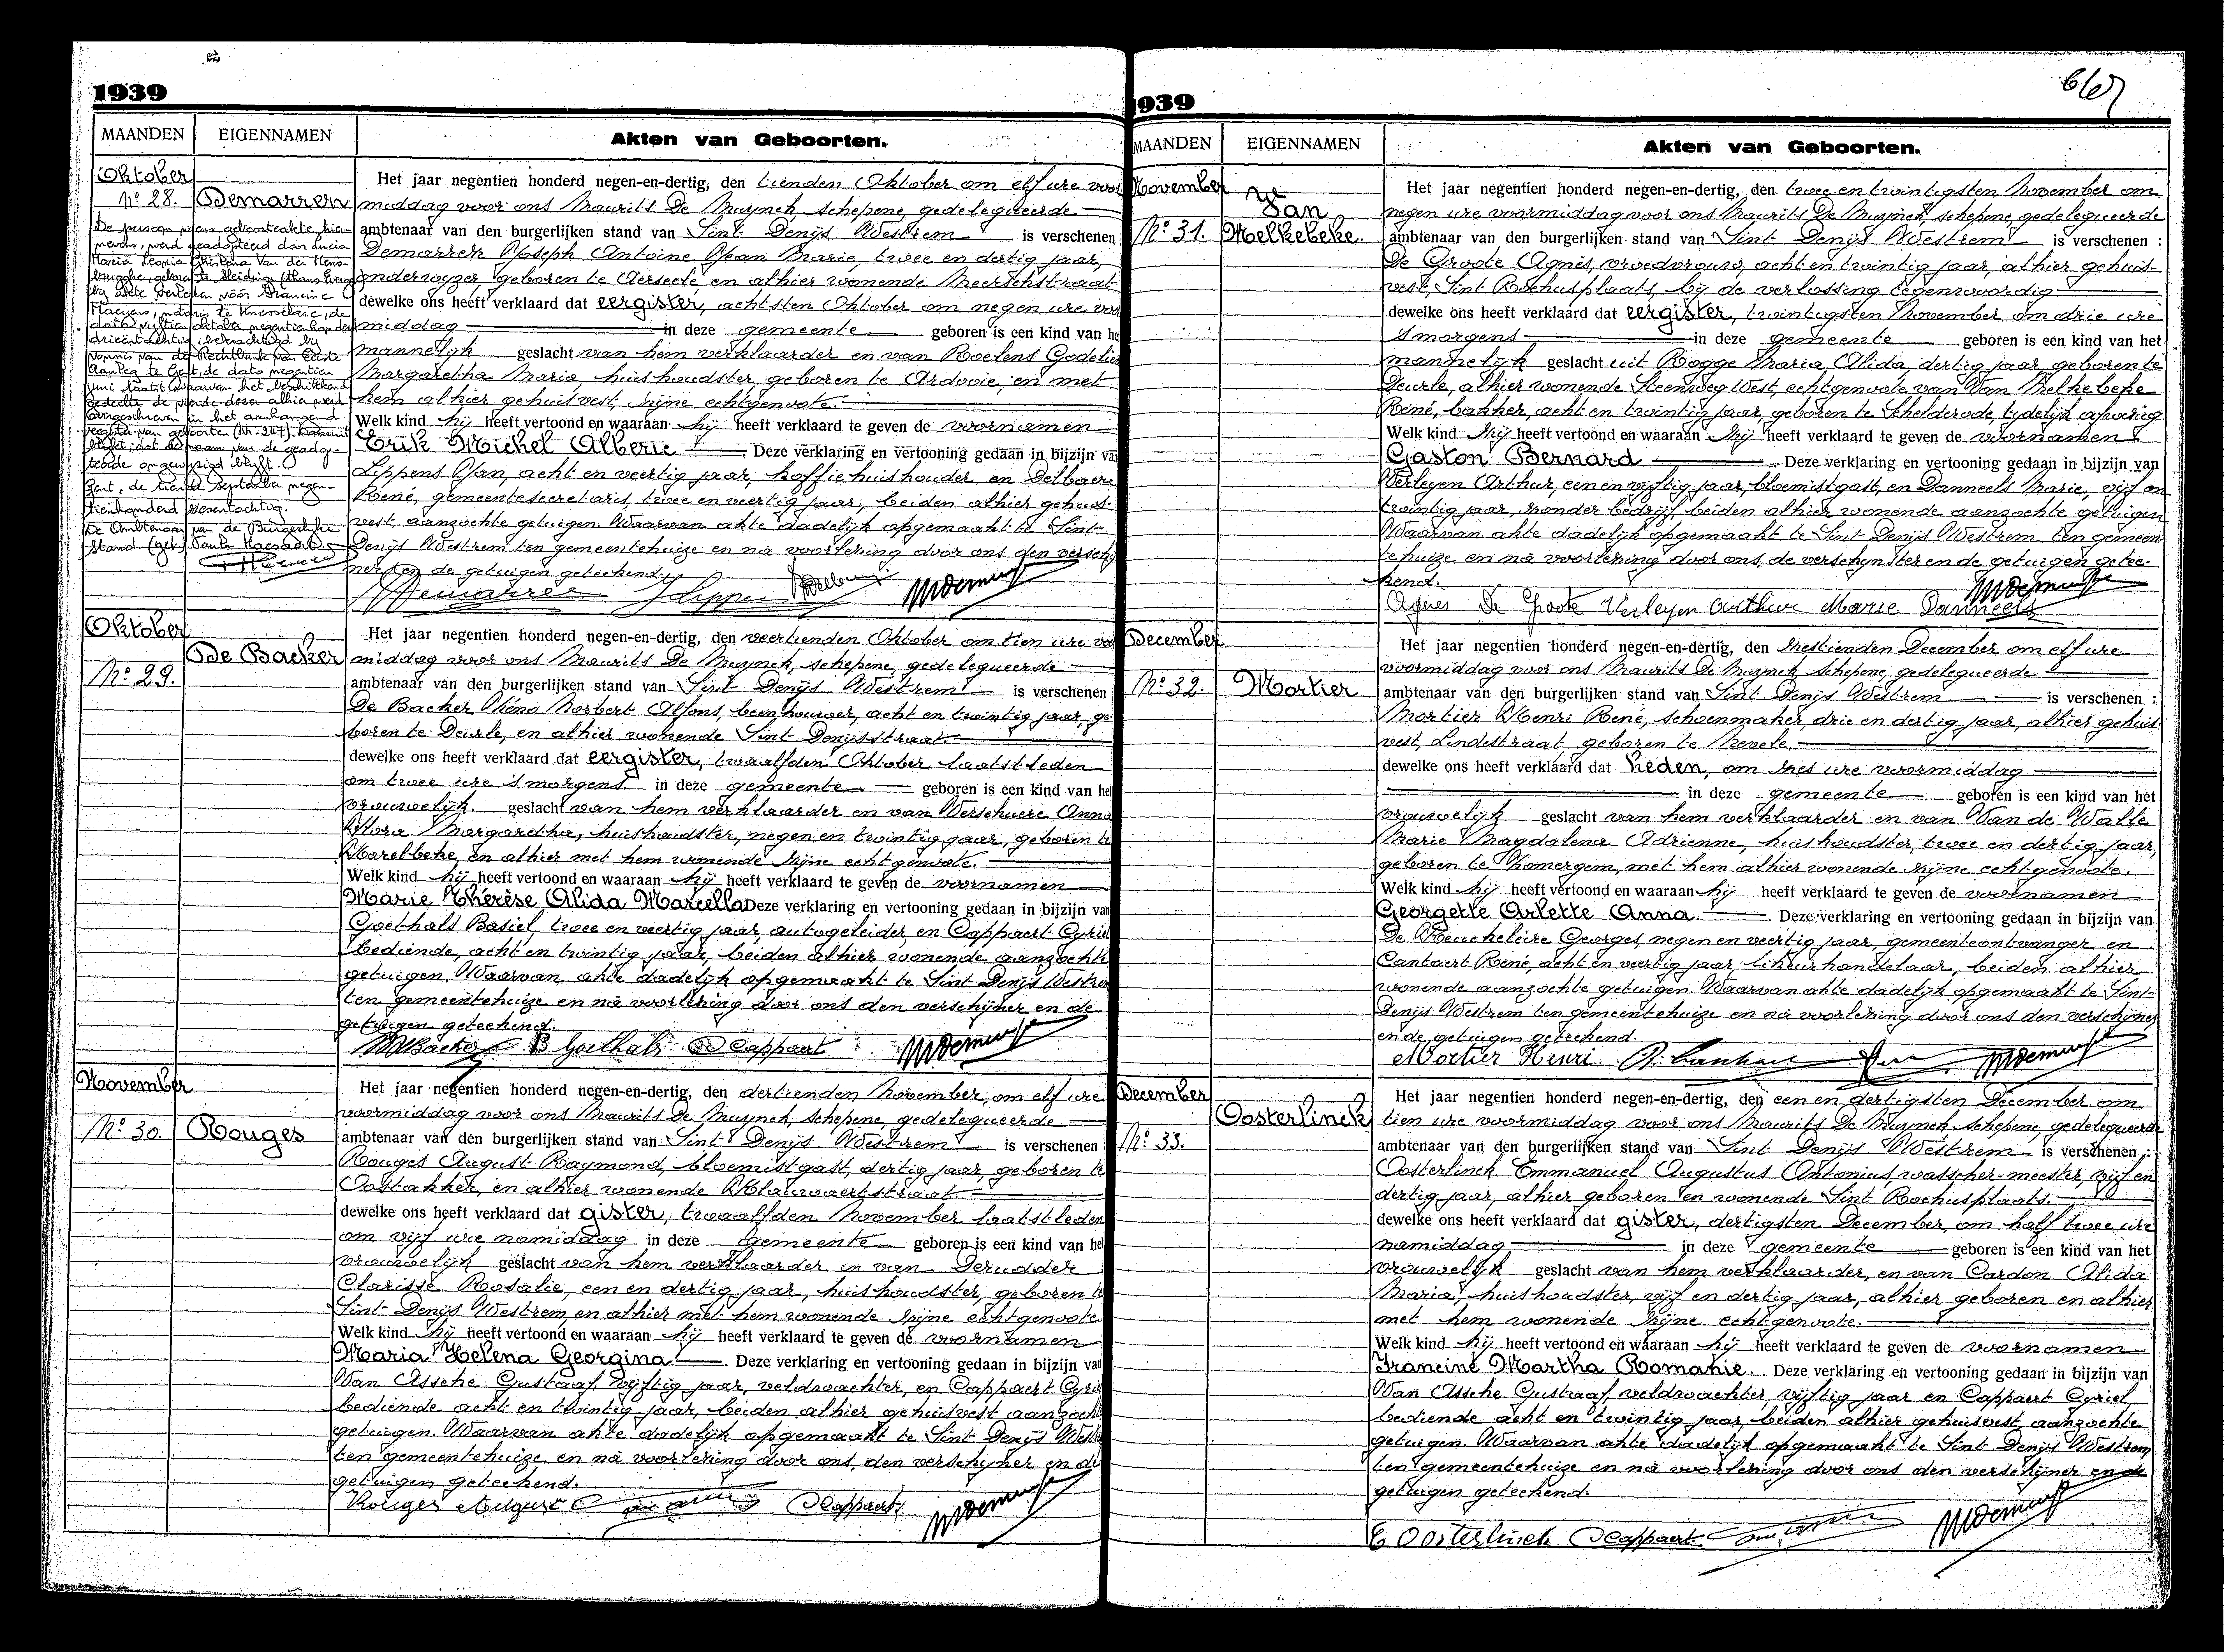 1939
MAANDEN EIGENNAMEN Akten van Geboorten.
Oktober
N° 28. Demarren
De persoon wiens geboorteakte hier-
nevens, werd geadopteerd door Lucia
Maria Leonia Christina Van der Haeg-
bij akte verleden vóór Francine
notaris te de
dato vijftien oktober negentienhonderd
drieëntachtig, bekrachtigd bij
vonnis van de Rechtbank van Eerste
Aanleg te Gent, de dato negentien
juni waarvan het beschikkend
gedeelte de werd
overgeschreven in het aanhangend
register van geboorten (Nr. 247). Hieruit
blijkt, dat de naam van de geadop-
teerde ongewijzigd blijft.
Gent, de tiende september negen-
tienhonderd zesentachtig.
De Ambtenaar van de Burgerlijke
Stand. (get.) Paula
Het jaar negentien honderd negen-en-dertig, den tienden Oktober om elf ure voor
middag voor ons Maurits De Muynck, schepene, gedelegueerde
ambtenaar van den burgerlijken stand van Sint Denijs Westrem is verschenen
Demarren Joseph Antoine Jean Marie, twee en dertig jaar,
onderwyzer, geboren te Aerseele en alhier wonende Meerschstraat
dewelke ons heeft verklaard dat eergister, achtsten Oktober om negen ure voor
middag in deze gemeente geboren is een kind van he
mannelijk geslacht van hem verklaarder en van Roelens Godelie
Margaretha Maria, huishoudster, geboren te Ardooie, en met
hem alhier gehuisvest, zijne echtgenote.
Welk kind hij heeft vertoond en waaraan hij heeft verklaard te geven de voornamen
Erik Michel Alberic Deze verklaring en vertooning gedaan in bijzijn va
Lippens Jan, acht en veertig jaar, koffiehuishouder, en Delbaere
René, gemeentesecretaris, twee en veertig jaar, beiden alhier gehuis-
vest, aanzochte getuigen. Waarvan akte dadelijk opgemaakt te Sint
Denijs Westrem ten gemeentehuize en nà voorlezing door ons, den verschij
ner en de getuigen geteekend.
Oktober
De Backer
N° 29.
Het jaar negentien honderd negen-en-dertig, den veertienden Oktober om tien ure voo
middag voor ons Maurits De Muynck, schepene, gedelegueerde
ambtenaar van den burgerlijken stand van Sint Denijs Westrem is verschenen
De Backer Réno Norbert Alfons, beenhouwer, acht en twintig jaar, ge-
boren te Deurle, en alhier wonende Sint Denijsstraat.
dewelke ons heeft verklaard dat eergister, twaalfden Oktober laatstleden
om twee ure 's morgens in deze gemeente geboren is een kind van he
vrouwelijk geslacht van hem verklaarder en van Verschuere Anna
Flora Margaretha, huishoudster, negen en twintig jaar, geboren te
Harelbeke, en alhier met hem wonende zijne echtgenote.
Welk kind hij heeft vertoond en waaraan hij heeft verklaard te geven de voornamen
Marie Thérèse Alida Marcella Deze verklaring en vertooning gedaan in bijzijn va
Goethals Basiel, twee en veertig jaar, autogeleider, en Cappaert Cyriel
bediende, acht en twintig jaar, beiden alhier wonende aanzochte
getuigen. Waarvan akte dadelijk opgemaakt te Sint Denijs Westrem
ten gemeentehuize en nà voorlezing door ons den verschijner en de
getuigen geteekend.
B Goethals C Cappaert
November
N° 30. Rouges
Het jaar negentien honderd negen-en-dertig, den dertienden November, om elf ure
voormiddag voor ons Maurits De Muynck, schepene, gedelegueerde
ambtenaar van den burgerlijken stand van Sint Denijs Westrem is verschenen
Rouges August Raymond, bloemistgast, dertig jaar, geboren te
Oostakker, en alhier wonende Klauwaertstraat
dewelke ons heeft verklaard dat gister, twaalfden November laatstleden
om vijf ure namiddag in deze gemeente geboren is een kind van he
vrouwelijk geslacht van hem verklaarder en van Derudder
Clarisse Rosalie, een en dertig jaar, huishoudster, geboren te
Sint Denijs Westrem, en alhier met hem wonende zijne echtgenote
Welk kind hij heeft vertoond en waaraan hij heeft verklaard te geven de voornamen
Maria Helena Georgina. Deze verklaring en vertooning gedaan in bijzijn va
Van Assche Gustaaf, vijftig jaar, veldwachter, en Cappaert Cyriel
bediende acht en twintig jaar, beiden alhier gehuisvest aanzochte
getuigen. Waarvan akte dadelijk opgemaakt te Sint Denijs West
ten gemeentehuize en nà voorlezing door ons, den verschijner en de
getuigen geteekend.
Rouges August C Cappaert
939
MAANDEN EIGENNAMEN Akten van Geboorten.
November
Van
N° 31. Melkebeke.
Het jaar negentien honderd negen-en-dertig, den twee en twintigsten November om
negen ure voormiddag voor ons Maurits De Muynck, schepene, gedelegueerde
ambtenaar van den burgerlijken stand van Sint Denijs Westrem is verschenen :
De Groote Agnès, vroedvrouw, acht en twintig jaar, alhier gehuis-
vest, Sint Rochusplaats, bij de verlossing tegenwoordig
dewelke ons heeft verklaard dat eergister, twintigsten November om drie ure
's morgens in deze gemeente geboren is een kind van het
mannelijk geslacht uit Rogge Maria Alida, dertig jaar, geboren te
Deurle, alhier wonende Steenweg West, echtgenote van Van Melkebeke
René, bakker, acht en twintig jaar, geboren te Schelderode, tydelijk afwezig
Welk kind zij heeft vertoond en waaraan zij heeft verklaard te geven de voornamen
Gaston Bernard. Deze verklaring en vertooning gedaan in bijzijn van
Verleyen Arthur, een en vijftig jaar, bloemistgast, en Danneels Marie, vijf en
twintig jaar, zonder bedrijf, beiden alhier wonende aanzochte getuigen
Waarvan akte dadelijk opgemaakt te Sint Denijs Westrem ten gemeen-
tehuize en nà voorlezing door ons, de verschijnster en de getuigen getee-
kend.
Agnes De Groote Verleyen Arthur Marie Danneels
December
N° 32. Mortier
Het jaar negentien honderd negen-en-dertig, den zestienden December om elf ure
voormiddag voor ons Maurits De Muynck, schepene, gedelegueerde
ambtenaar van den burgerlijken stand van Sint Denijs Westrem is verschenen :
Mortier Henri René, schoenmaker, drie en dertig jaar, alhier gehuis-
vest, Lindestraat, geboren te Nevele.
dewelke ons heeft verklaard dat heden, om zes ure voormiddag
in deze gemeente geboren is een kind van het
vrouwelijk geslacht van hem verklaarder en van Van de Walle
Marie Magdalena Adrienne, huishoudster, twee en dertig jaar,
geboren te Somergem, met hem alhier wonende zijne echtgenote.
Welk kind hij heeft vertoond en waaraan hij heeft verklaard te geven de voornamen
Georgette Arlette Anna. Deze verklaring en vertooning gedaan in bijzijn van
De Keuckeleire Georges, negen en veertig jaar, gemeenteontvanger en
Cantaert René, acht en veertig jaar, likeurhandelaar, beiden alhier
wonende aanzochte getuigen. Waarvan akte dadelijk opgemaakt te Sint
Denijs Westrem ten gemeentehuize en nà voorlezing door ons den verschijner
en de getuigen geteekend.
Mortier Henri
December
Oosterlinck
N° 33.
Het jaar negentien honderd negen-en-dertig, den een en dertigsten December om
tien ure voormiddag voor ons Maurits De Muynck schepene, gedelegueerde
ambtenaar van den burgerlijken stand van Sint Denijs Westrem is verschenen :
Oosterlinck Emmanuel Augustus Antonius, wasscher-meester, vijf en
dertig jaar, alhier geboren en wonende Sint Rochusplaats.
dewelke ons heeft verklaard dat gister, dertigsten December, om half twee ure
namiddag in deze gemeente geboren is een kind van het
vrouwelijk geslacht van hem verklaarder, en van Cardon Alida
Maria, huishoudster, vijf en dertig jaar, alhier geboren en alhier
met hem wonende zijne echtgenote.
Welk kind hij heeft vertoond en waaraan hij heeft verklaard te geven de voornamen
Francine Martha Romanie. Deze verklaring en vertooning gedaan in bijzijn van
Van Assche Gustaaf, veldwachter vijftig jaar en Cappaert Cyriel
bediende acht en twintig jaar, beiden alhier gehuisvest, aanzochte
getuigen. Waarvan akte dadelijk opgemaakt te Sint Denijs Westrem
ten gemeentehuize en nà voorlezing door ons den verschijner en de
getuigen geteekend.
E Oosterlinck C Cappaert